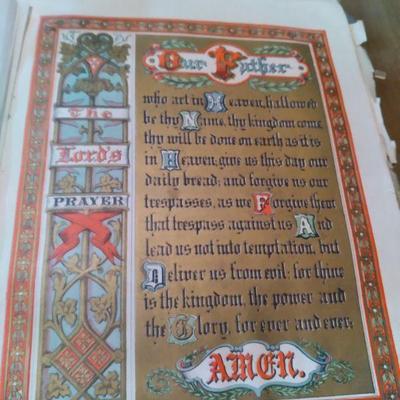 The
Lord's
PRAYER
Our Father
who art in Heaven, hallowed
be thy Name, thy kingdom come
thy will be done on earth as it is
in Heaven, give us this day our
daily bread; and forgive us our
trespasses, as we Forgive them
that trespass against us And
lead us not into temptation, but
Deliver us from evil: for thine
is the kingdom, the power and
the Glory, for ever and ever;
AMEN.